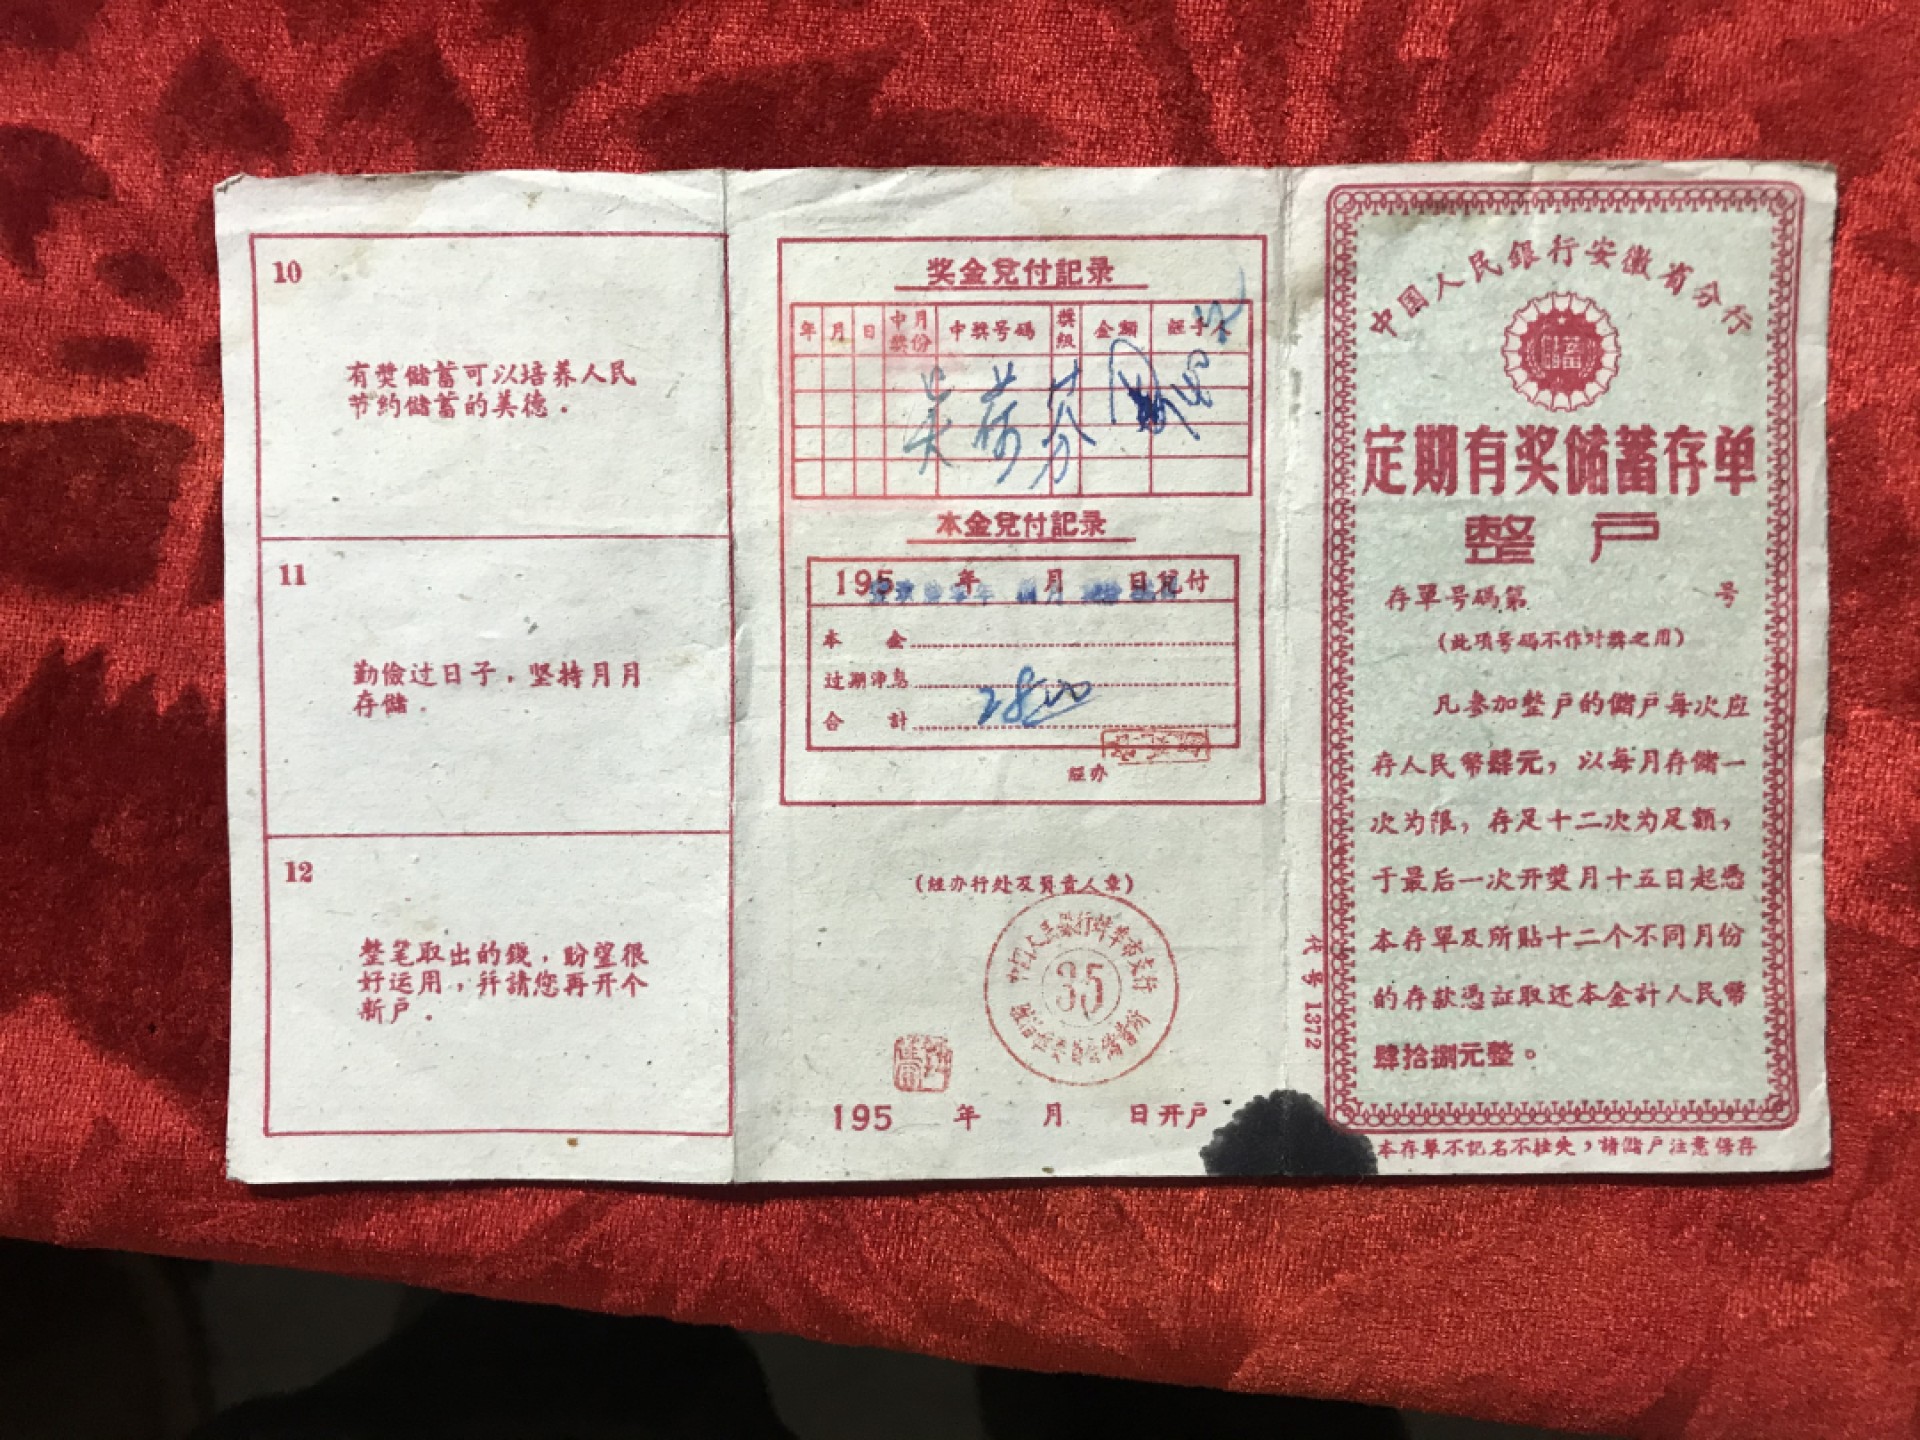 10
有奬儲蓄可以培养人民
节約儲蓄的美德．
11
勤儉过日子，坚持月月
存儲．
12
整笔取出的錢，盼望很
好运用，幷請您再开个
新戶．
奖金兌付記录
年 月 日 中奬月份 中奬号碼 奬級 金額 經手人
本金兌付記录
195 年 月 日兌付
本 金
过期净息
28.00
合 計
經办
(經办行处及負責人章)
中国人民銀行蚌埠市支行
35
195 年 月 日开戶
中国人民銀行安徽省分行
儲蓄
定期有奖儲蓄存单
整戶
存單号碼第 号
(此項号碼不作对奬之用)
凡参加整戶的儲戶每次应
存人民幣肆元，以每月存儲一
次为限，存足十二次为足額，
于最后一次开奬月十五日起憑
本存單及所貼十二个不同月份
的存款憑証取还本金計人民幣
肆拾捌元整。
代号 1372
本存單不記名不挂失，請儲戶注意保存